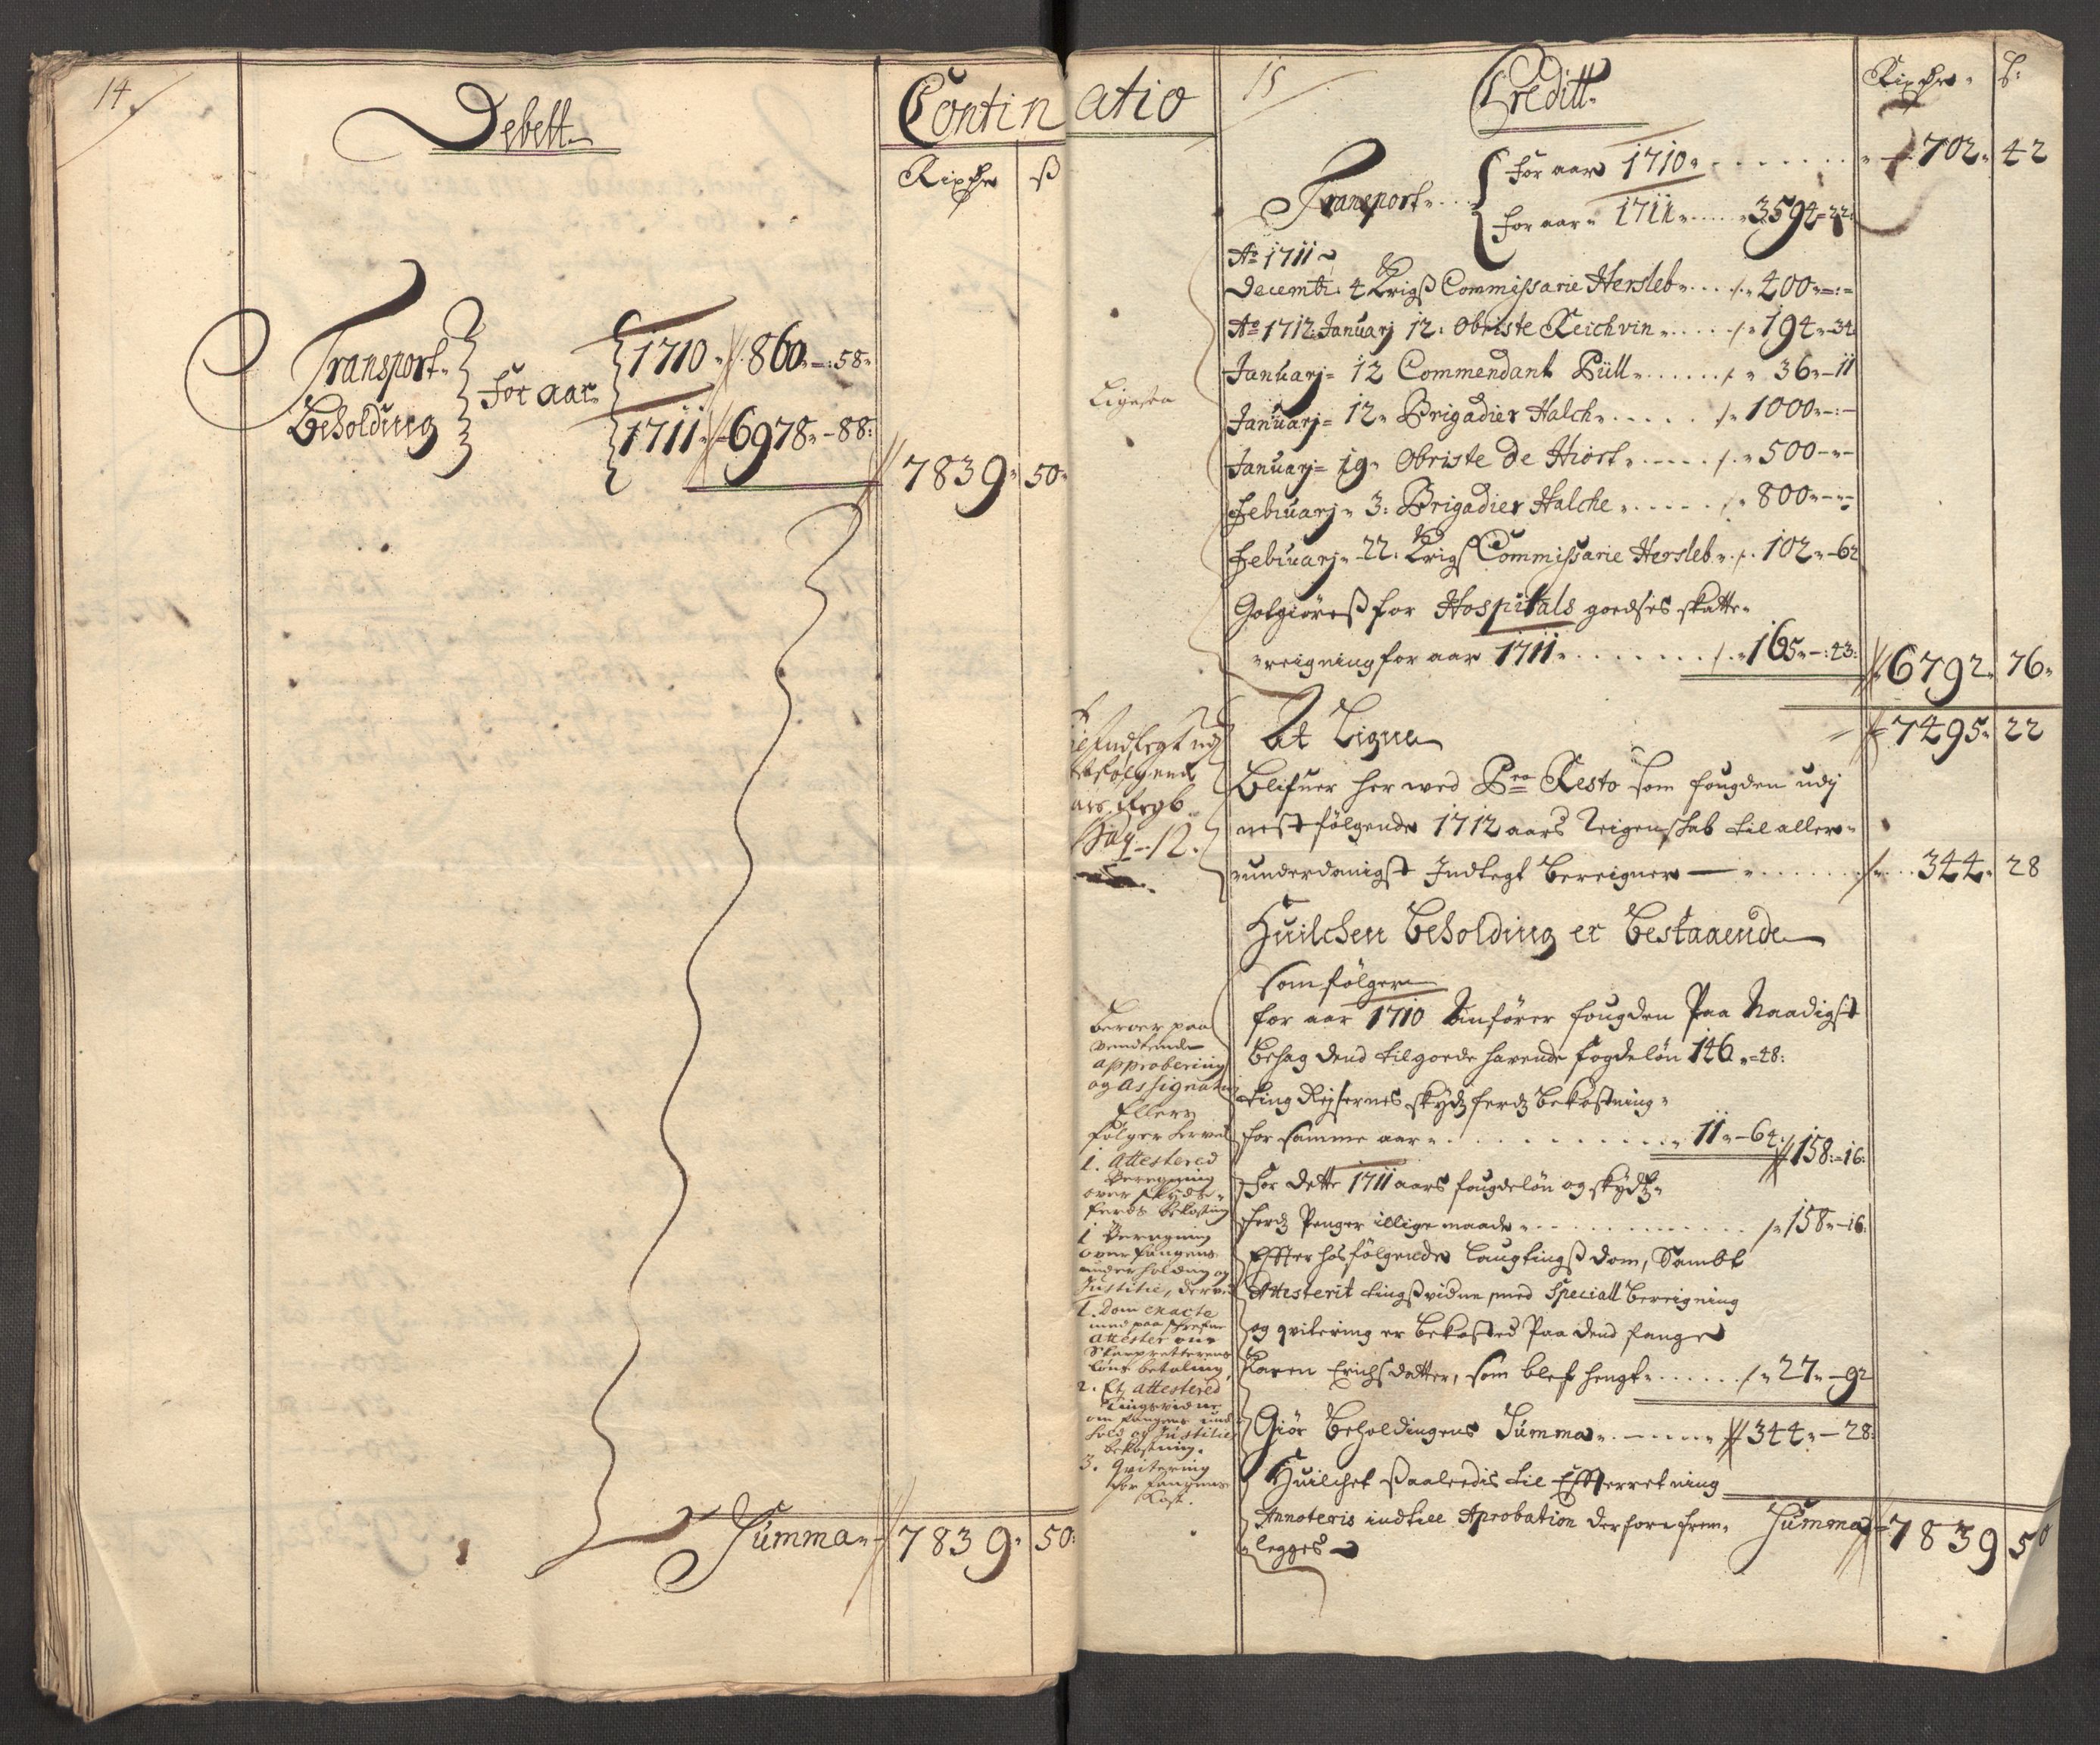 14
Debett
Contin
Rixdr ß
Transport
Beholding
for aar
1710 860 - 58
1711 6978 - 88
7839 50
Summa 7839 50
atio
15
Creditt
Rixdr ß
Transport
for aar 1710 702 42
for aar 1711 3594 - 22
Ao 1711
Decembr: 4 Krigß Commissarie Hersleb 400
Ao 1712: Januarj 12: Obriste Reichvin 194 - 32
Januarj 12 Commendant Püll 36 - 11
Januarj 12 Brigadier Halch 1000
Januarj 19 Obriste de Hiort 500
Februarj 3: Brigadier Halche 800
Februarj 22: Krigß Commissarie Hersleb 102 - 62
Godgiöreß for Hospitals goedses skatte
reigning for aar 1711 165 - 43
6792 76
At Ligne 7495 22
Blifuer her wed Pro Resto som fougden udj
nest følgende 1712 aars Reigenskab til aller
underdanigst Indlegt Bereigner 344 28
Huilchen Beholding er Bestaaende
som følger
for aar 1710 anfører fougden Paa Naadigst
behag dend tilgoede havende fogdeløn 146 - 48
ting Reisernes skydz ferdz bekostning
for samme aar 11 - 64 158 - 16
For dette 1711 aars fougdeløn og skydz
ferdz Penger illige maade 158 - 16
Effter hosfølgende Laugtingß dom, Sambt
Attesterit tingßvidne med Speciall bereigning
og qvitering er bekosted Paa dend fange
Karen Erichsdatter, som blef hengt 27 - 92
Giør Beholdingens Summa 344 - 28
Huilchet saaledis til Effterretning
Annoteris indtill Aprobation derfore frem
legges
Summa 7839 50
Ligesaa
Indlegt udj
følgende
aars Regb.
Pag. 12.
Beroer paa
ventende
approbering
og assignation
Ellers
følger herved
1. attestered
Beregning
over skyds
ferds bekostning
1 Beregning
over fangens
underholdning og
Justitie, derved
1. Dom exacte
med paaskrefne
attester om
Skarpretterens
løns betaling
2. Et attestered
tingsvidne
om fangens und
hold og Justitie
bekostning.
3. qvitering
for fangens
Kost.